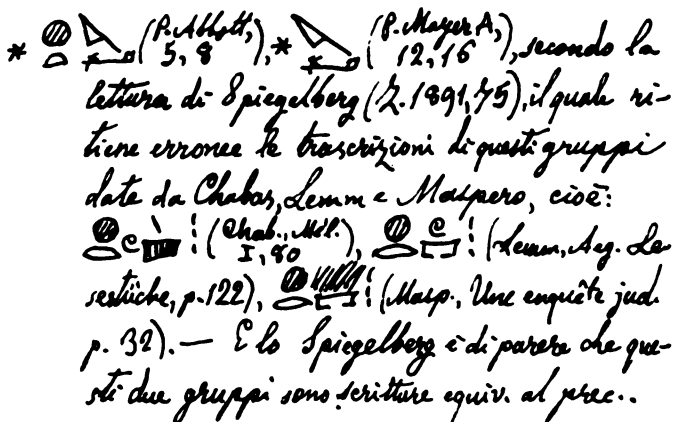 * (P. Abbott, 5, 8), * (P. Mayer A, 12, 16), secondo la
lettura di Spiegelberg (Z. 1891, 75), il quale ri-
tiene erronee le trascrizioni di questi gruppi
date da Chabas, Lemm e Maspero, cioè:
(Chab., Mél. I, 80), (Lemm, Aeg. Le-
sestücke, p. 122), (Masp., Une enquête jud.
p. 32). — E lo Spiegelberg è di parere che que-
sti due gruppi sono scritture equiv. al prec..